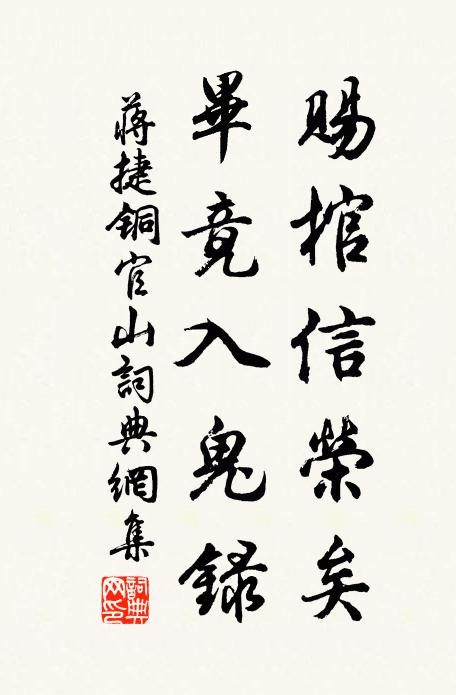 賜棺信榮矣
畢竟入鬼錄
蔣捷銅官山詞典網集
詞典網印